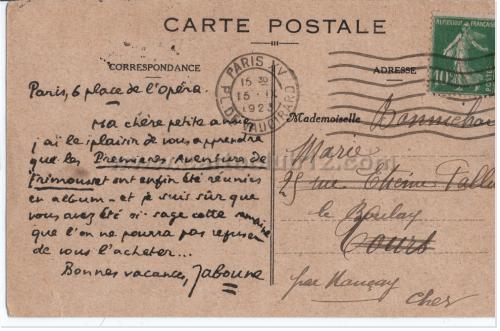 CARTE POSTALE
CORRESPONDANCE
ADRESSE
REPUBLIQUE FRANÇAISE
10
PARIS XV
15
15
1923
PL. DE VAUGIRARD
Paris, 6 place de l'opéra.
Ma chère petite amie,
j'ai le plaisir de vous apprendre
que les Premières Aventures de
Frimousset ont enfin été réunies
en album - et je suis sûr que
vous avez été si sage cette année
que l'on ne pourra pas refuser
de vous l'acheter...
Bonnes vacances, Jaboune
Mademoiselle
Marie
25 rue Etienne
le Boulay
Tours
par Nançay
Cher